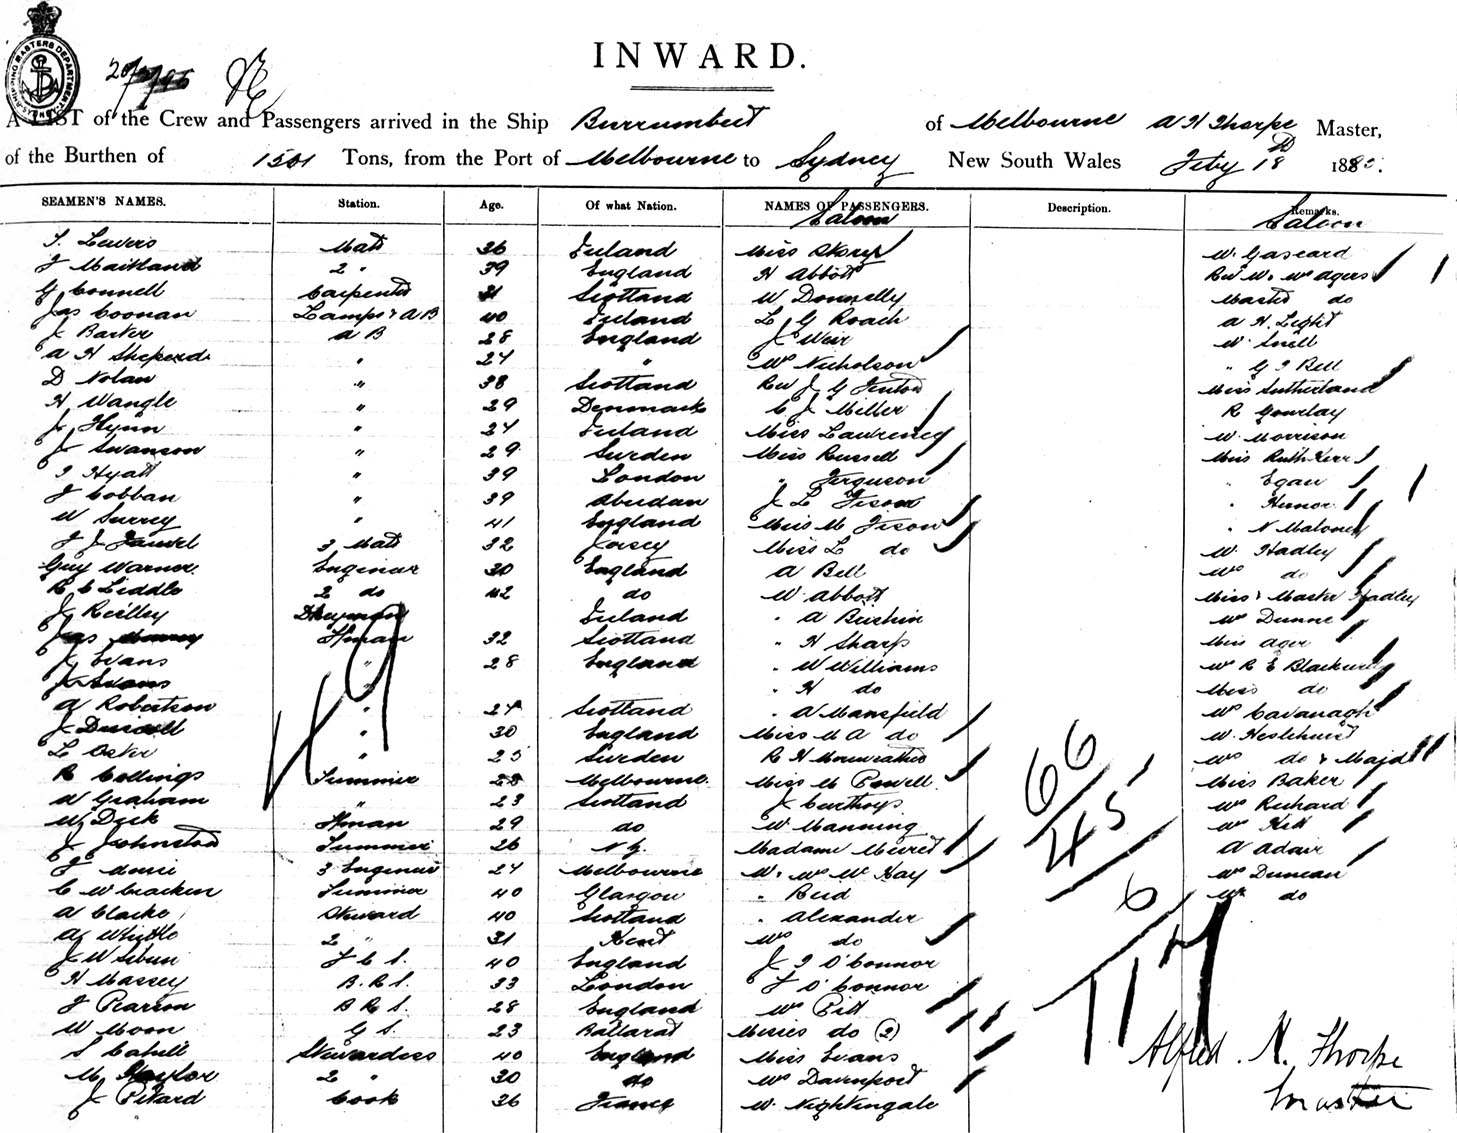 INWARD.
A LIST of the Crew and Passengers arrived in the Ship Burrumbeet of Melbourne A H Thorpe Master,
of the Burthen of 1501 Tons, from the Port of Melbourne to Sydney New South Wales Feby 18 188
SEAMEN'S NAMES. Station. Age. Of what Nation. NAMES OF PASSENGERS. Description. Remarks.
Saloon Saloon
Mate 36 Ireland Miss W. Gascard
J Maitland 2 " 39 England H Abbott Revd W. Mrs Agers
G Connell Carpenter 31 Scotland W Donnelly Master do
Jas Coonan Lamps & AB 40 Ireland L G Roach A H. Light
J Barker A B 28 England J Weir W. Snell
A H Sheperd " 24 " Mrs Nicholson " G I Bell
D Nolan " 38 Scotland Rev J G Fenton Miss Sutherland
H Wangle " 29 Denmark C J Miller R Gourlay
J Flynn " 24 Ireland Miss Lawrence W. Morrison
J Swanson " 29 Sweden Miss Russell Miss Ruth Kerr
I Hyatt " 39 London " Ferguson " Egan
J Cobban " 39 Aberdeen J L Fison "
W Surrey " 41 England Miss M Fison " N Maloney
J J 3 Mate 32 Jersey Miss L do W. Hadley
Guy Warner Engineer 30 England A Bell Mrs do
R C Liddle 2 do 42 do W Abbott Miss & Master Hadley
J Reilley Ireland " A Brishin Mrs Dunne
Jas Fman 32 Scotland " H Sharp Miss Ager
J Evans " 28 England " W Williams Mrs R E
J Evans " H do Miss do
A Robertson " 24 Scotland " A Mansfield Mrs Cavanagh
J Driscoll " 30 England Miss M A do W. Heslehurst
L Oster " 25 Sweden R H Mrs do & Maid
R Collings Trimmer 28 Melbourne. Miss M Powell Miss Baker
A Graham " 23 Scotland J Curthoys Mrs Richard
W Dick Fman 29 do W Manning Mrs
J Johnston Trimmer 26 N Z. Madame A Adair
3 Engineer 24 Melbourne W. Mrs McKay Mrs Duncan
C W Cracken Trimmer 40 Glasgow " Reid do
A Clarke Steward 40 Scotland " Alexander
A Whittle 2 " 31 Kent Mrs do
J W F C S. 40 England J I O'Connor
H Massey B. R S. 33 London J O'Connor
J Pearson B R S. 28 England Mrs Pitt
W Moon G S. 23 Ballarat Misses do (2)
S Cahill Stewardess 40 England Miss Evans
M 2 " 30 do Mrs Davenport
J Pikard Cook 36 France W. Nightingale
49
66
45
6
117
Alfred. H. Thorpe
Master